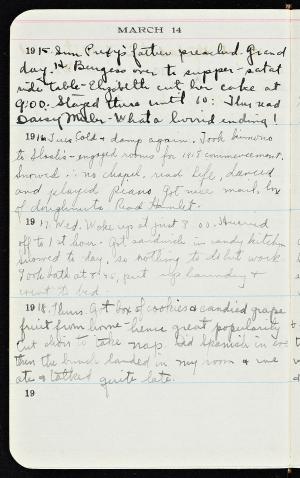 MARCH 14
1915. Sun. Prexy's father preached. Grand
day. H. Burgess over to supper - sat at
side table - Elizabeth cut her cake at
9:00. Stayed there until 10: Thus read
Daisy Miller - What a horrid ending!
1916 Tues Cold & damp again. Took kimono
to - engaged rooms for 1918 commencement.
Snowed ∴ no chapel, read Life, danced
and played piano. Got nice mail, box
of doughnuts. Read Hamlet.
1917. Wed. Woke up at just 8:00. Hurried
off to 1st hour. Got sandwich in candy kitchen
snowed to day, so nothing to do but work.
Took bath at 8:45, put up laundry &
went to bed.
1918. Thurs. Got box of cookies & candied grape
fruit from home - hence great popularity
Cut choir to take nap. Had Spanish in eve
then the bunch landed in my room & we
ate & talked quite late.
19